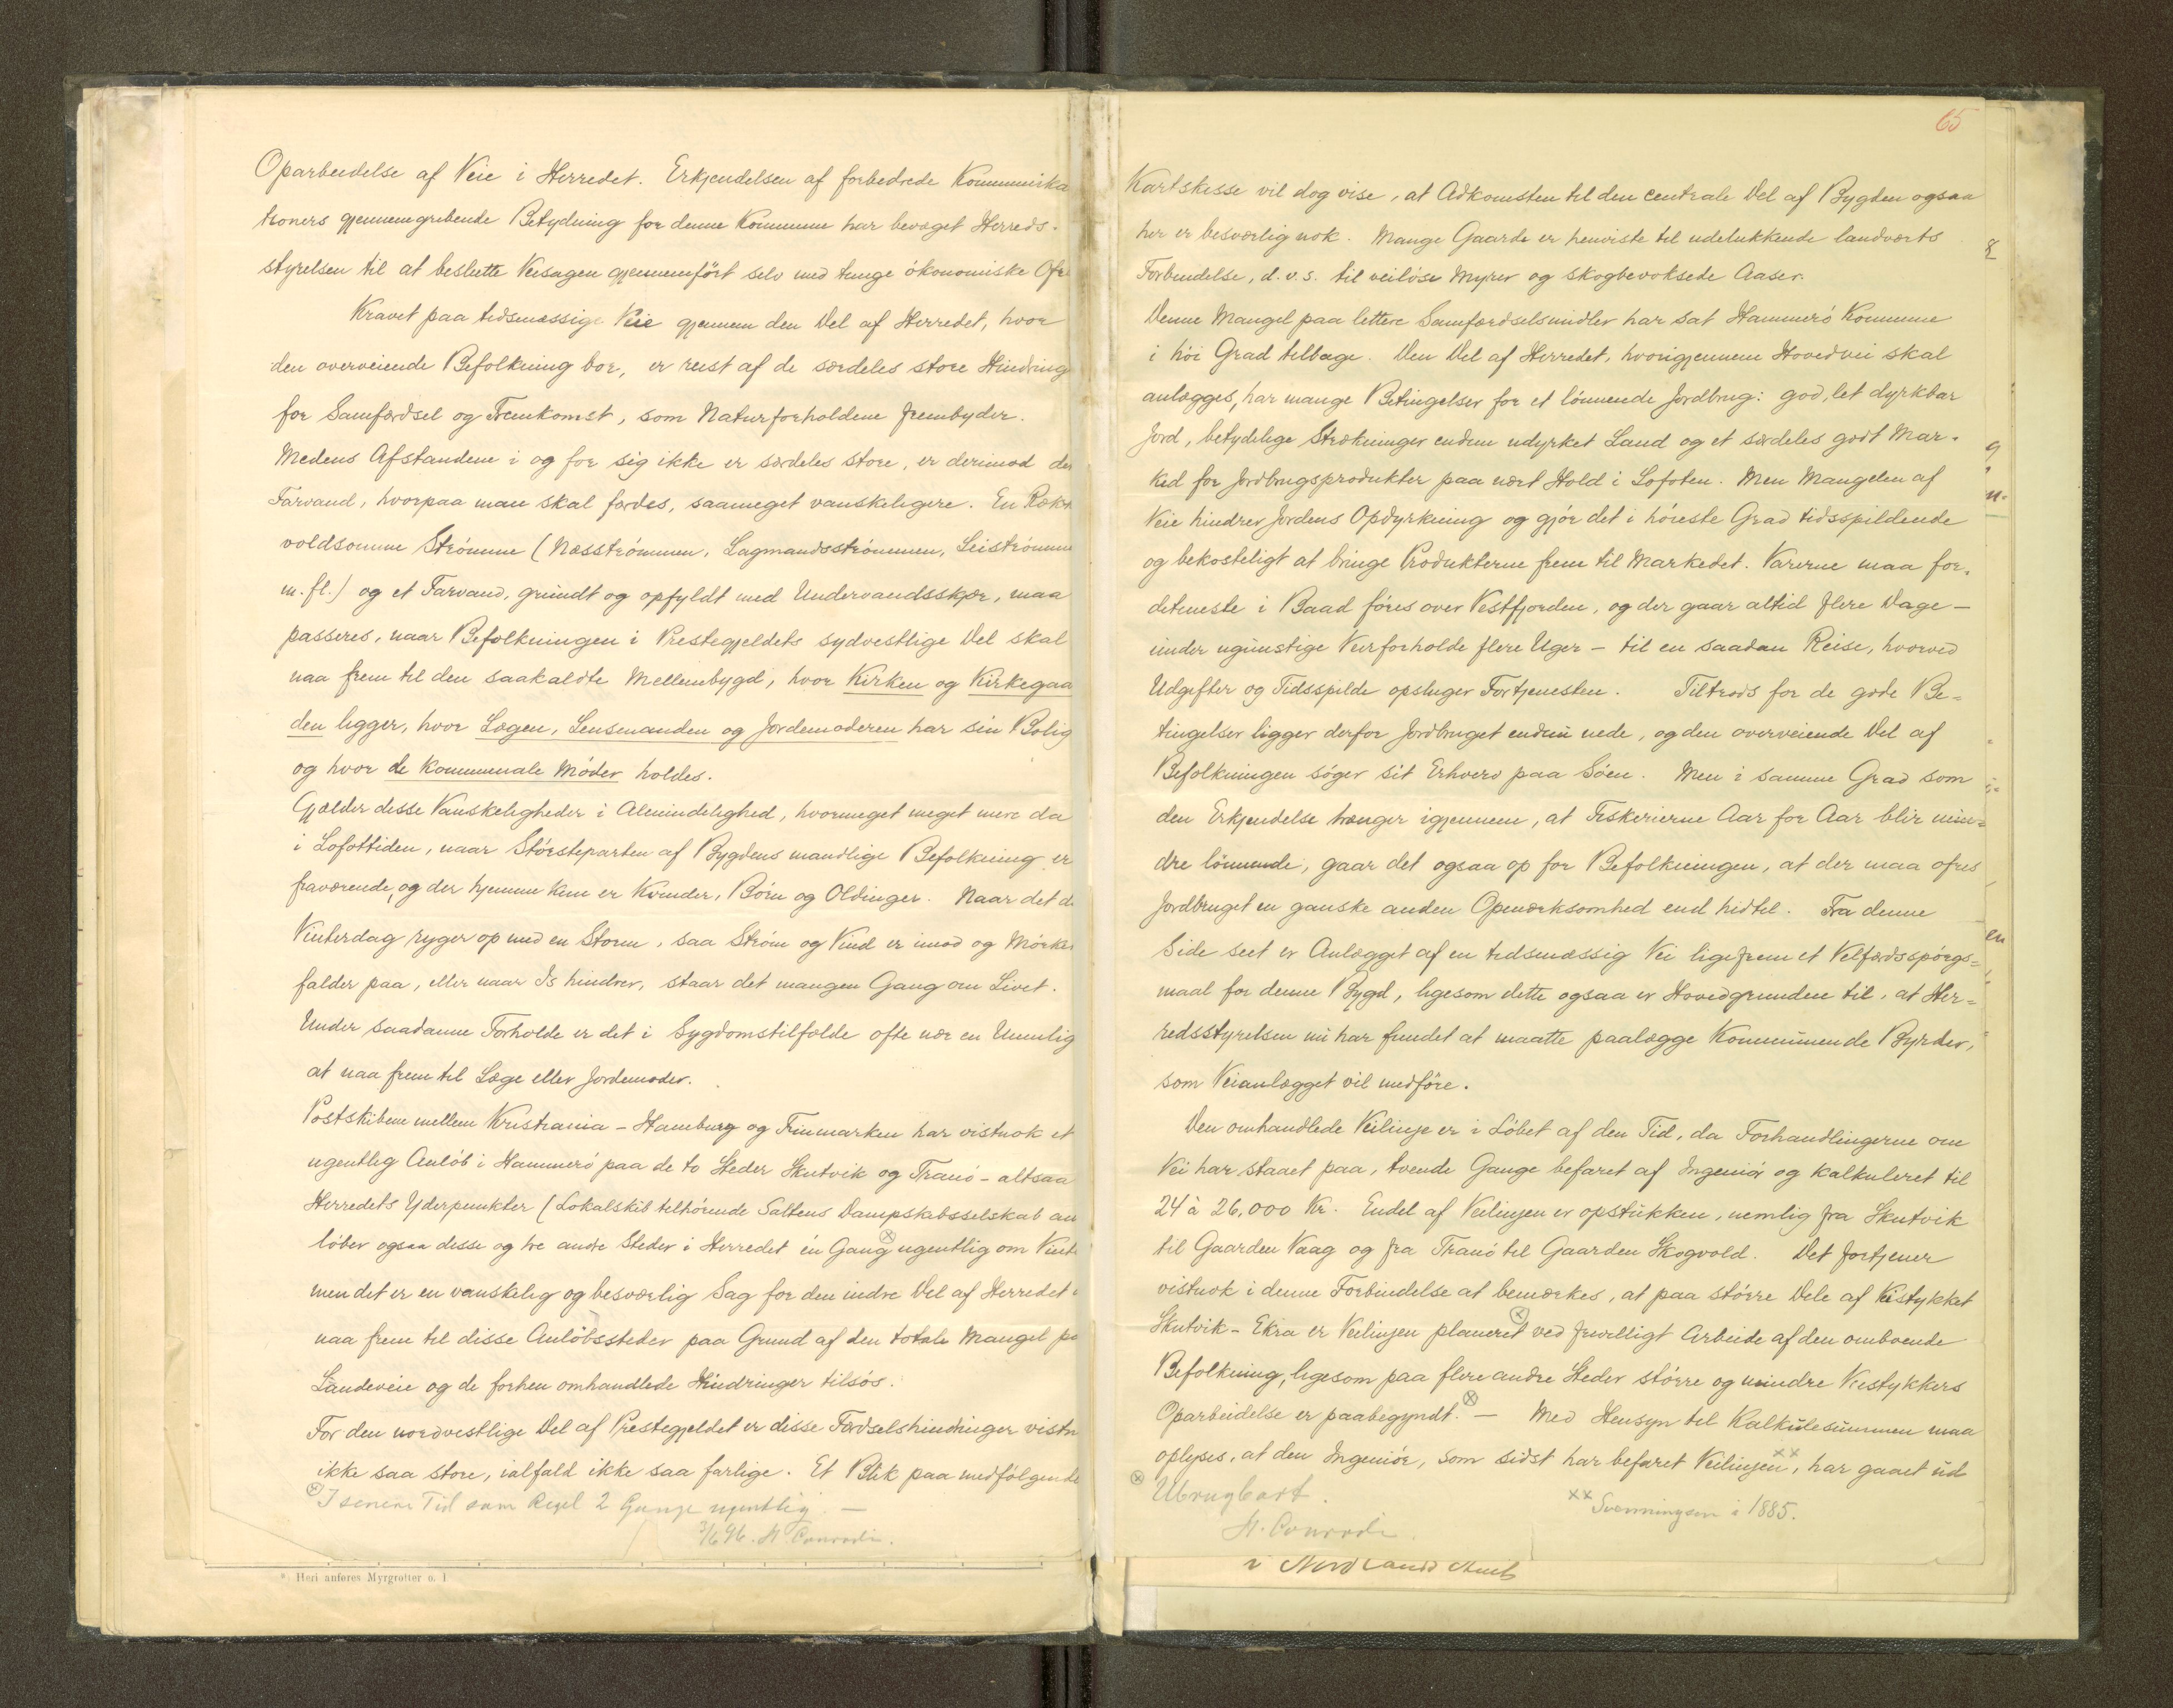 Oparbeidelse af Veie i Herredet. Erkjendelsen af forbedrede Kommunika
tioners gjennemgribende Betydning for denne Kommune har bevæget Herreds-
styrelsen til at beslutte Veisagen gjennemført selv med tunge økonomiske Ofre
Kravet paa tidsmæssige Veie gjennem den Del af Herredet, hvor
den overveiende Befolkning bor, er reist af de særdeles store Hindring
for Samfærdsel og Fremkomst, som Naturforholdene frembyder.
Medens Afstandene i og for sig ikke er særdeles store, er derimod de
Farvand, hvorpaa man skal færdes, saameget vanskeligere. En Række
voldsomme Strømme (Næsstrømmen, Lagmandsstrømmen, Leistrømme
m.fl.) og et Farvand, grundt og opfyldt med Undervandsskjær, maa
passeres, naar Befolkningen i Prestegjeldets sydvestlige Del skal
naa frem til den saakaldte Mellembygd, hvor Kirken og Kirkegaa
den ligger, hvor Lægen, Lensmanden og Jordemoderen har sin Bolig
og hvor de kommunale Møder holdes.
Gjælder disse Vanskeligheder i Almindelighed, hvormeget meget mere da
i Lofottiden, naar Størsteparten af Bygdens mandlige Befolkning er
fraværende, og der hjemme kun er Kvinder, Børn og Oldinger. Naar det d
Vinterdag ryger op med en Storm, saa Strøm og Vind er imod og Mørke
falder paa, eller naar Is hindrer, staar det mangen Gang om Livet.
Under saadanne Forholde er det i Sygdomstilfælde ofte nær en Umulig
at naa frem til Læge eller Jordemoder.
Postskibene mellem Kristiania - Hamburg og Finmarken har vistnok et
ugentlig Anløb i Hammerø paa de to Steder Skutvik og Tranø - altsaa
Herredets Yderpunkter (Lokalskib tilhørende Saltens Dampskibsselskab an
løber ogsaa disse og tre andre Steder i Herredet én Gang ⊗ ugentlig om Vint
men det er en vanskelig og besværlig Sag for den indre Del af Herredet
naa frem til disse Anløbssteder paa Grund af den totale Mangel pa
Landeveie og de forhen omhandlede Hindringer tilsøs.
For den nordvestlige Del af Prestegjeldet er disse Færdselshindringer vistn
ikke saa store, ialfald ikke saa farlige. Et Blik paa medfølgende
⊗ I senere Tid som Regel 2 Gange ugentlig. —
3/6 96. H. Conradi.
* Heri anføres Myrgrøfter o. l
65
Kartskisse vil dog vise, at Adkomsten til den centrale Del af Bygden ogsaa
her er besværlig nok. Mange Gaarde er henviste til udelukkende landværts
Forbindelse, d.v.s. til veiløse Myrer og skogbevoksede Aaser.
Denne Mangel paa lettere Samfærdselsmidler har sat Hammerø Kommune
i høi Grad tilbage. Den Del af Herredet, hvorigjennem Hovedvei skal
anlægges, har mange Betingelser for et lønnende Jordbrug: god, let dyrkbar
Jord, betydelige Strækninger endnu udyrket Land og et særdeles godt Mar-
ked for Jordbrugsprodukter paa nært Hold i Lofoten. Men Mangelen af
Veie hindrer Jordens Opdyrkning og gjør det i høieste Grad tidsspildende
og bekosteligt at bringe Produkterne frem til Markedet. Varerne maa for-
detmeste i Baad føres over Vestfjorden, og der gaar altid flere Dage -
under ugunstige Veirforholde flere Uger - til en saadan Reise, hvorved
Udgifter og Tidsspilde opsluger Fortjenesten. Tiltrods for de gode Be=
tingelser ligger derfor Jordbruget endnu nede, og den overveiende Del af
Befolkningen søger sit Erhverv paa Søen. Men i samme Grad som
den Erkjendelse trænger igjennem, at Fiskerierne Aar for Aar blir min=
dre lønnende, gaar det ogsaa op for Befolkningen, at der maa ofres
Jordbruget en ganske anden Opmærksomhed end hidtil. Fra denne
Side seet er Anlægget af en tidsmæssig Vei ligefrem et Velfærdsspørgs=
maal for denne Bygd, ligesom dette ogsaa er Hovedgrunden til, at Her=
redsstyrelsen nu har fundet at maatte paalægge Kommunen de Byrder,
som Veianlægget vil medføre.
Den omhandlede Veilinje er i Løbet af den Tid, da Forhandlingerne om
Vei har staaet paa, tvende Gange befaret af Ingeniør og kalkuleret til
24 à 26.000 Kr. Endel af Veilinjen er opstukken, nemlig fra Skutvik
til Gaarden Vaag og fra Tranø til Gaarden Skogvold. Det fortjener
vistnok i denne Forbindelse at bemærkes, at paa større Dele af Veistykket
Skutvik - Ekra er Veilinjen planeret ⊗ ved frivilligt Arbeide af den omboende
Befolkning, ligesom paa flere andre Steder større og mindre Veistykkers
Oparbeidelse er paabegyndt. ⊗ — Med Hensyn til Kalkulesummen maa
oplyses, at den Ingeniør, som sidst har befaret Veilinjen ××, har gaaet ud
⊗ Ubrugbart.
H. Conradi.
×× Svenningsen i 1885.
i Nordlands Amt